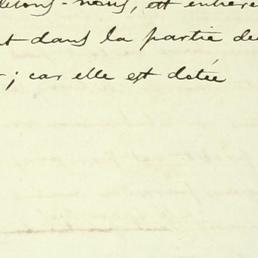 -nous, est entière
t dans la partie de
; car elle est dotée